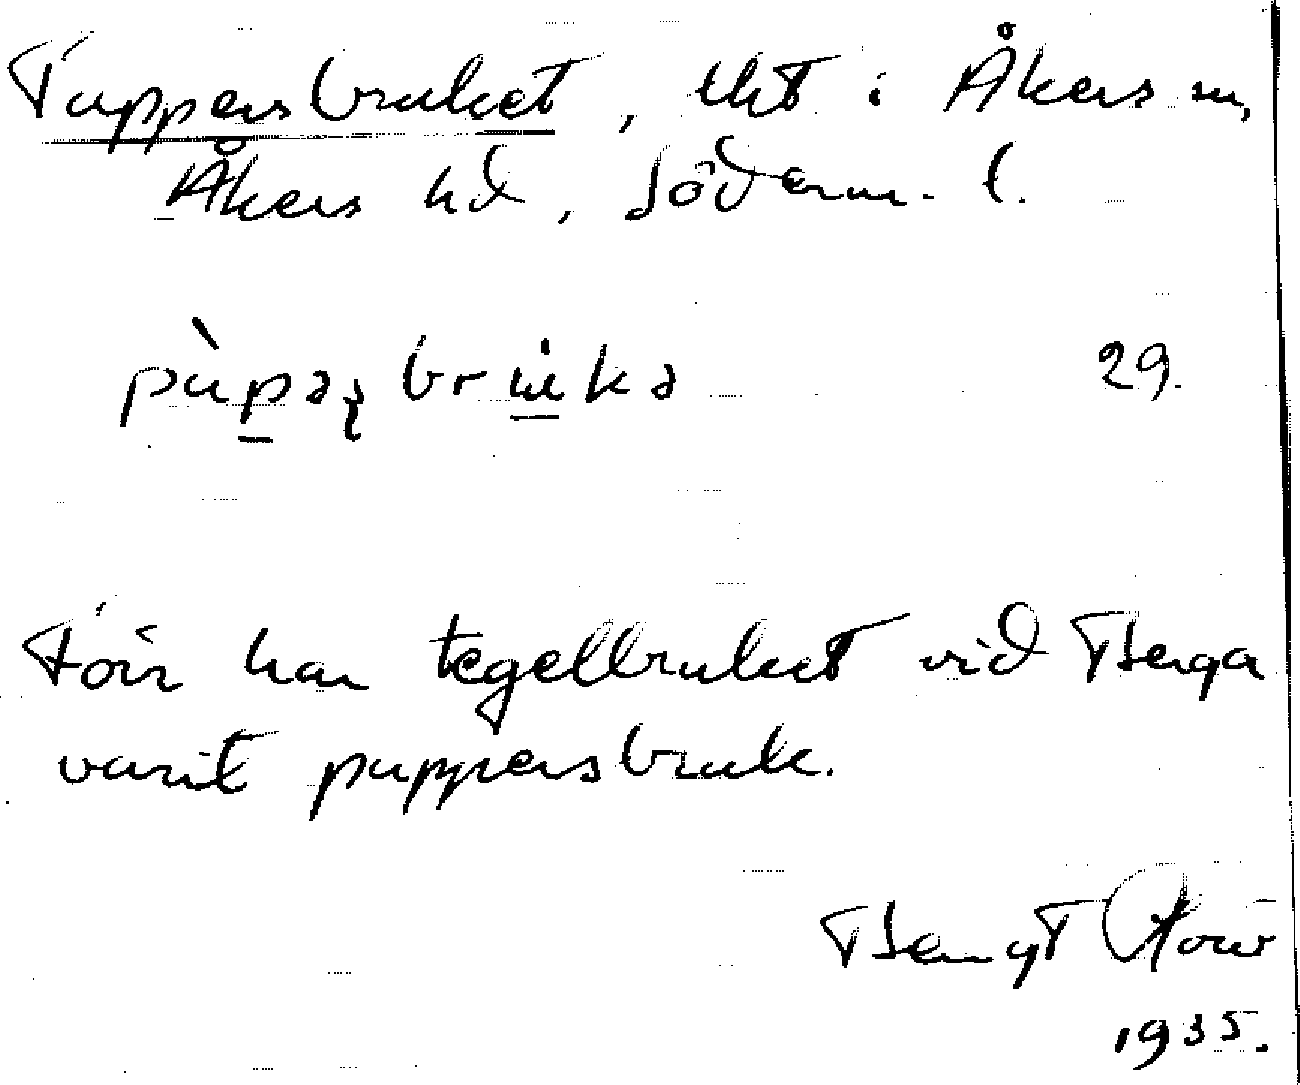 Puppersbruket, tkt i Åkers sn,
Åkers hd, Söderm. l.
pùpəʂbrʉ̀kə 29.
Förr har tegelbruket vid Berga
varit puppersbruk.
Bengt
1935.